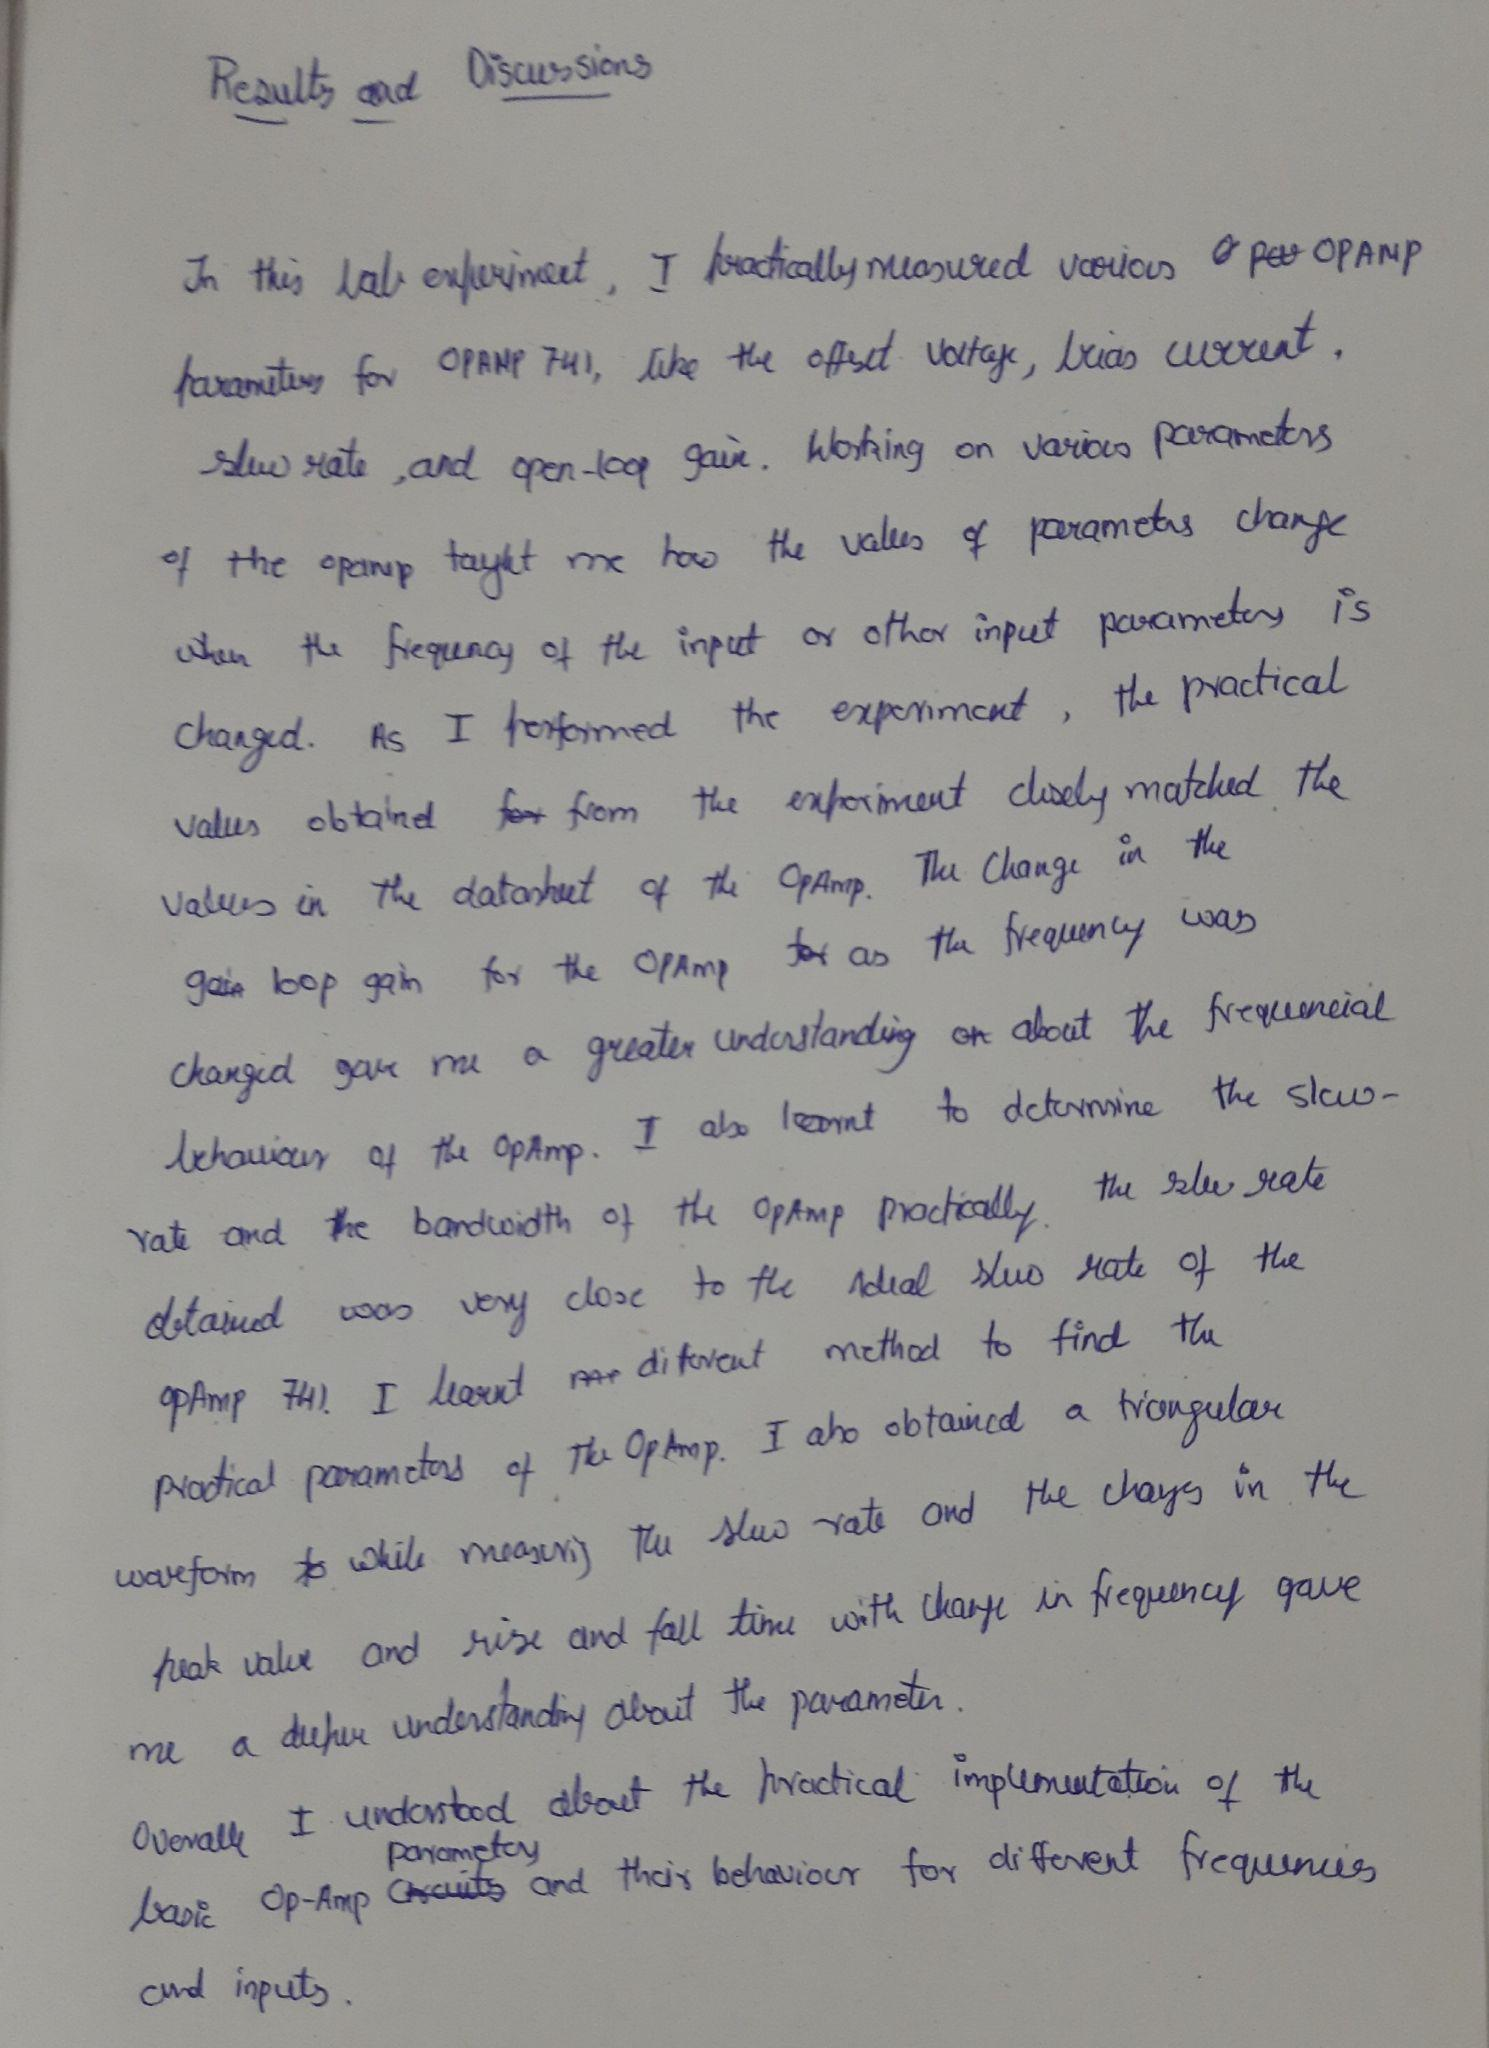 Results and Discussions
In this lab experiment, I practically measured various OPAMP
parameters for OPAMP 741, like the offset voltage, bias current,
slew rate, and open-loop gain. Working on various parameters
of the opamp taught me how the values of parameters change
when the frequency of the input or other input parameters is
changed. As I performed the experiment, the practical
values obtained for from the experiment closely matched the
values in the datasheet of the OpAmp. The change in the
gain loop gain for the OPAmp for as the frequency was
changed gave me a greater understanding on about the frequencial
behaviour of the OpAmp. I also learnt to determine the slew-
rate and the bandwidth of the OpAmp practically. the slew rate
obtained was very close to the ideal slew rate of the
opAmp 741. I learnt diferent method to find the
practical parameters of The OpAmp. I also obtained a triangular
waveform to while measuring The slew rate and the changes in the
peak value and rise and fall time with change in frequency gave
me a deeper understanding about the parameter.
Overall I understood about the practical implementation of the
basic Op-Amp Circuits parameters and their behaviour for different frequencies
and inputs.